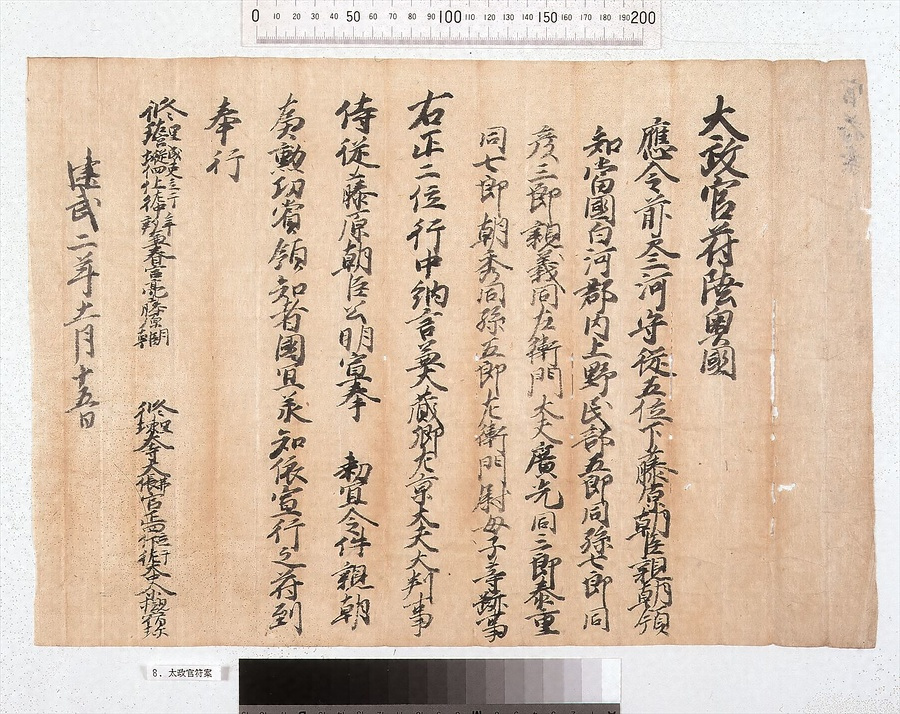 太政官符陸奥國
應令前参河守従五位下藤原朝臣親朝領
知當國白河郡内上野民部五郎同孫七郎同
彦三郎親義同左衛門大夫廣光同三郎泰重
同七郎朝秀同孫五郎左衛門尉母子等跡事
右正二位行中納言兼大蔵卿左京大夫大判事
侍従藤原朝臣公明宣奉 勅宜令件親朝
為勲功賞領知者國宜承知依宣行之符到
奉行
修理 左中弁 正四位上 兼春宮亮藤原朝臣
修理東大寺大佛長官正四位 行
建武二年十一月十五日
8. 太政官符案
0 10 20 30 40 50 60 70 80 90 100 110 120 130 140 150 160 170 180 190 200